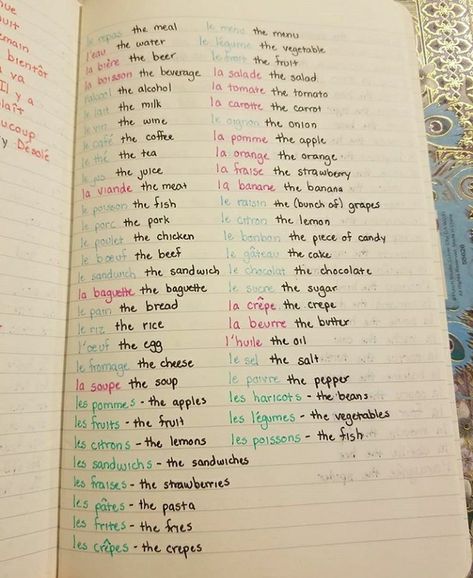 ue
uit
emain
bientôt
va
Il y a
laît
ucoup
y Désolé
le repas the meal
l'eau the water
la bière the beer
la boisson the beverage
l'alcool the alcohol
le lait the milk
le vin the wine
le café the coffee
le thé the tea
the juice
la viande the meat
le poisson the fish
le porc the pork
le poulet the chicken
le boeuf the beef
le sandwich the sandwich
la baguette the baguette
le pain the bread
le riz the rice
l'oeuf the egg
le fromage the cheese
la soupe the soup
les pommes - the apples
les fruits - the fruit
les citrons - the lemons
les sandwichs - the sandwiches
les fraises - the strawberries
les pâtes - the pasta
les frites - the fries
les crêpes - the crepes
le menu the menu
le légume the vegetable
le fruit the fruit
la salade the salad
la tomate the tomato
la carotte the carrot
le oignon the onion
la pomme the apple
la orange the orange
la fraise the strawberry
la banane the banana
le raisin the (bunch of) grapes
le citron the lemon
le bonbon the piece of candy
le gâteau the cake
le chocolat the chocolate
le sucre the sugar
la crêpe the crepe
la beurre the butter
l'huile the oil
le sel the salt
le poivre the pepper
les haricots - the beans
les légumes - the vegetables
les poissons - the fish